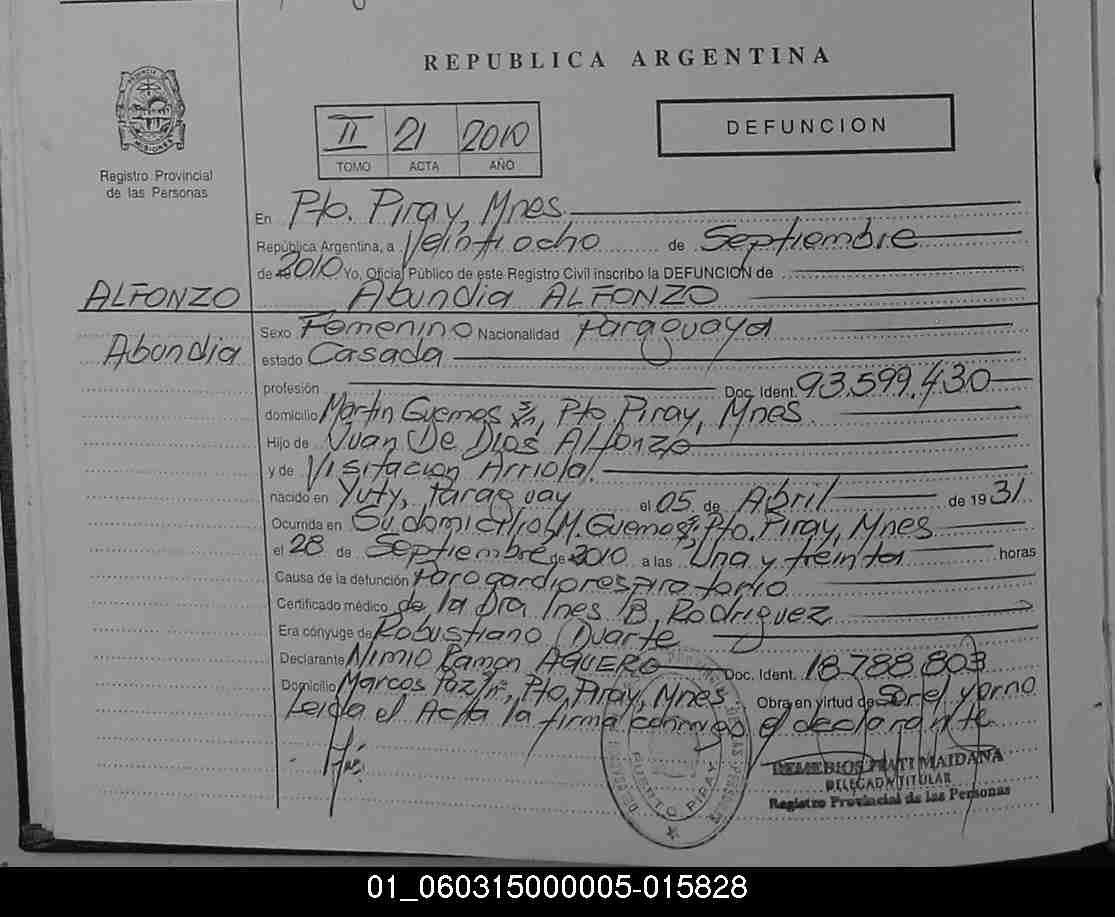 REPUBLICA ARGENTINA
PROVINCIA DE MISIONES
Registro Provincial
de las Personas
II 21 2010
TOMO ACTA AÑO
DEFUNCION
En Pto. Piray, Mnes
República Argentina, a Veintiocho de Septiembre
de 2010 Yo, Oficial Público de este Registro Civil inscribo la DEFUNCION de
ALFONZO Abundia ALFONZO
Abundia
Sexo Femenino Nacionalidad Paraguaya
estado Casada
profesión Doc. Ident. 93.599.430
domicilio Martin Guemes s/n, Pto. Piray, Mnes
Hijo de Juan De Dios Alfonzo
y de Visitacion Arriola
nacido en Yuty, Paraguay el 05 de Abril de 1931
Ocurrida en Su domicilio M. Guemes s/n, Pto. Piray, Mnes
el 28 de Septiembre de 2010 a las Una y treinta horas
Causa de la defunción Paro cardiorespiratorio
Certificado médico de la Dra Ines B. Rodriguez
Era cónyuge de Robustiano Duarte
Declarante Nimio Ramon AGUERO Doc. Ident. 18.788.803
Domicilio Marcos Paz s/n, Pto. Piray, Mnes Obra en virtud de Ser el yerno
Leida el Acta la firma conmigo el declarante
PUERTO PIRAY
MAIDANA
DELEGADA TITULAR
Registro Provincial de las Personas
01_060315000005-015828